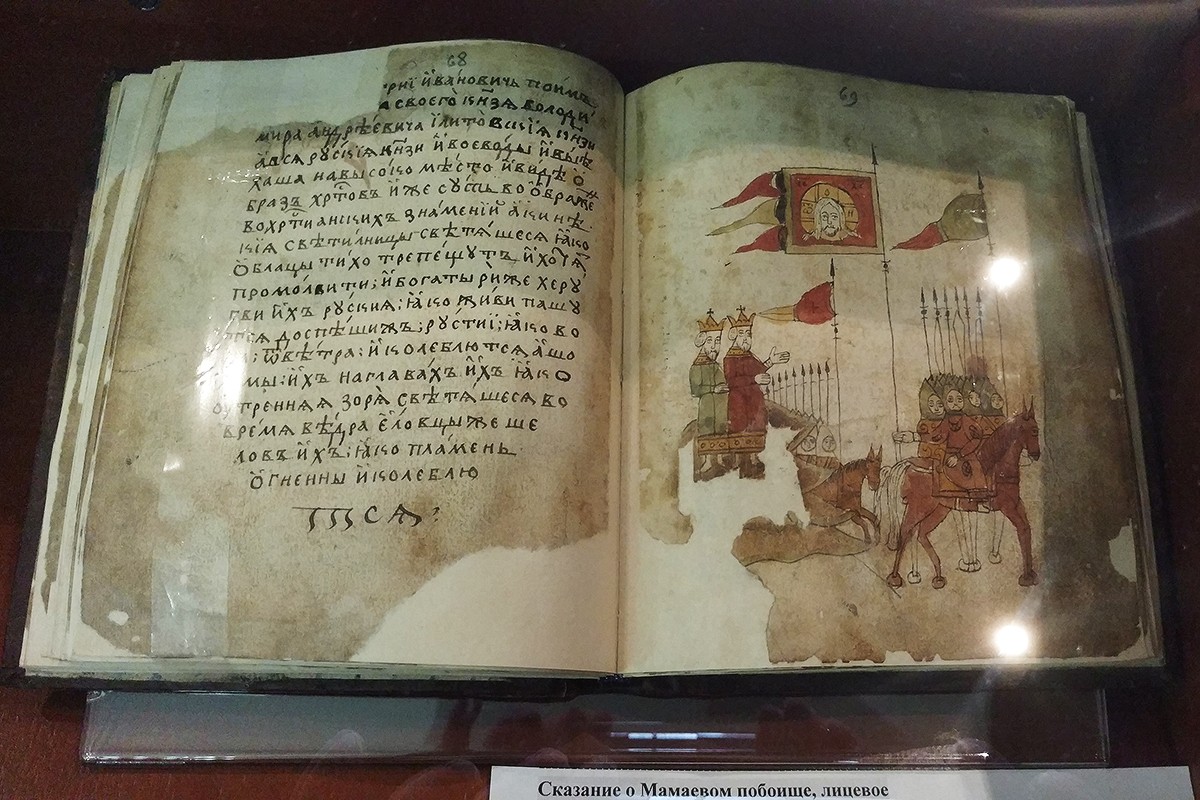 68
рнї и҆ва́новичь пои́мъ
а своего̀ кн҃зѧ володи́
мира андре́евича і҆литовскїѧ кн҃зи
а҆всѧ рꙋскїѧ кн҃зи и҆воеводы и҆выѣ
хаша навысоко мѣсто и҆видѣ ѻ҆
бразъ хрⷭ҇товъ и҆же сꙋть во ѻ҆браже
во хрⷭ҇тїанскихъ знаменїй а҆ки нѣ
кїѧ свѣтилницы свѣтѧшесѧ ꙗ҆ко
ѻ҆блацы тихо трепещꙋтъ и҆хотѧ
промолвити; и҆богатыри же херꙋ
гви и҆хъ рꙋския; ꙗ҆ко живи пашꙋ
тсѧ доспѣши жъ; рꙋстиї; ꙗ҆ко во
ѿвѣтра; и҆колеблютсѧ а҆шо
мы; и҆хъ наглавахъ и҆хъ ꙗ҆ко
ѹтреннѧѧ зорѧ свѣтѧшесѧ во
времѧ вѣдра е҆ловцы же ше
ловъ и҆хъ; ꙗ҆ко пламень
ѻ҆гненны и҆колеблю
тсѧ:
69
Сказание о Мамаевом побоище, лицевое